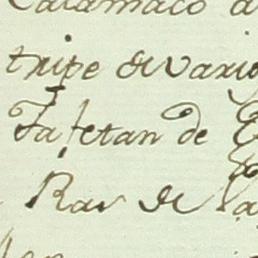 Calamaco d
tripe de vario
Tafetan de
Ras de